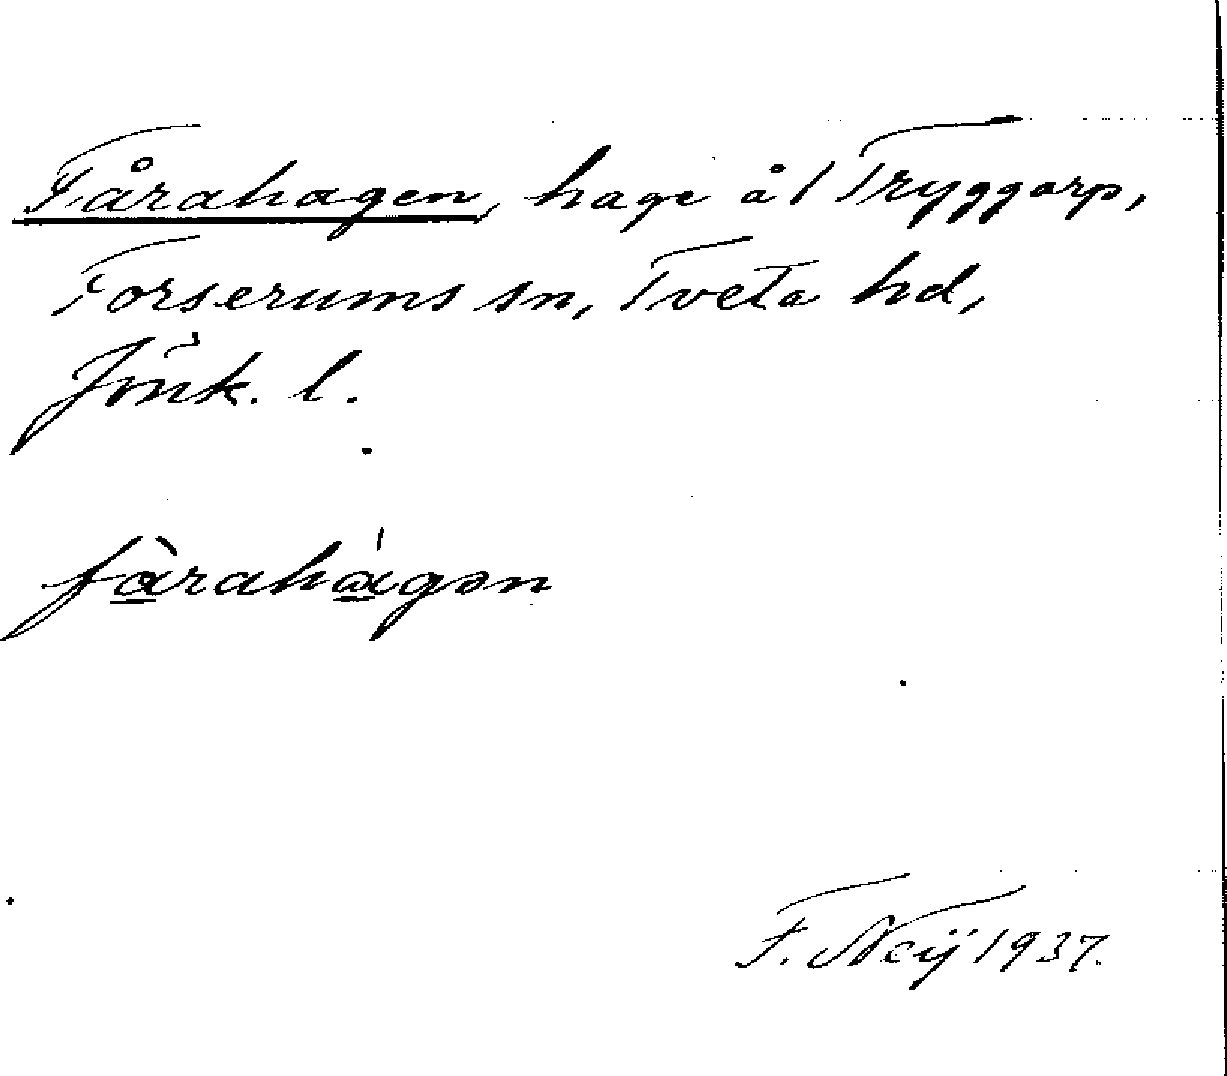 Fårahagen, hage å / Tryggarp,
Forserums sn, Tveta hd,
Jönk. l.
fàrahágən
F. Neÿ 1937.